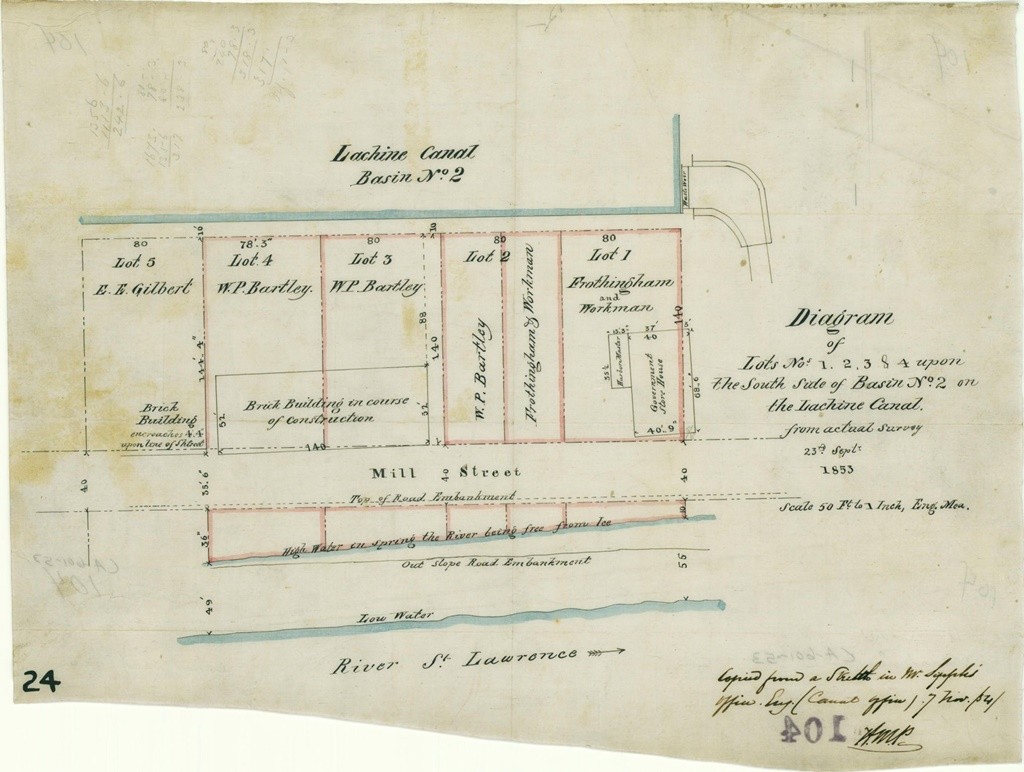 Lachine Canal
Basin No. 2
Waste Weir
10'
80
78'.3"
80
10
80
80
Lot 5
E. E. Gilbert
Lot 4
W.P. Bartley.
Lot 3
W.P. Bartley
Lot 2
W.P. Bartley
Frothingham & Workman
Lot 1
Frothingham
and
Workman
144'.4"
88
140
140
37'
40
Government
Store House
68'.6"
40'.9"
Brick
Building
encroaches 4.4
upon line of Street
52'
Brick Building in course
of Construction
52'
140
Diagram
of
Lots Nos. 1, 2, 3 & 4 upon
the South Side of Basin No. 2 on
the Lachine Canal.
from actual Survey
23rd Sept:
1853
Scale 50 Ft. to 1 Inch, Eng. Mea.
Mill Street
40
35'.6"
40
40
Top of Road Embankment
36"
High Water in spring the River being free from Ice
Out Slope Road Embankment
55'
49'
Low Water
River St. Lawrence
24
Copied from a Sketch in Mr. Sippel's
Office. Esq. (Canal Office) 7 Nov. /54/
H.M.P.
104